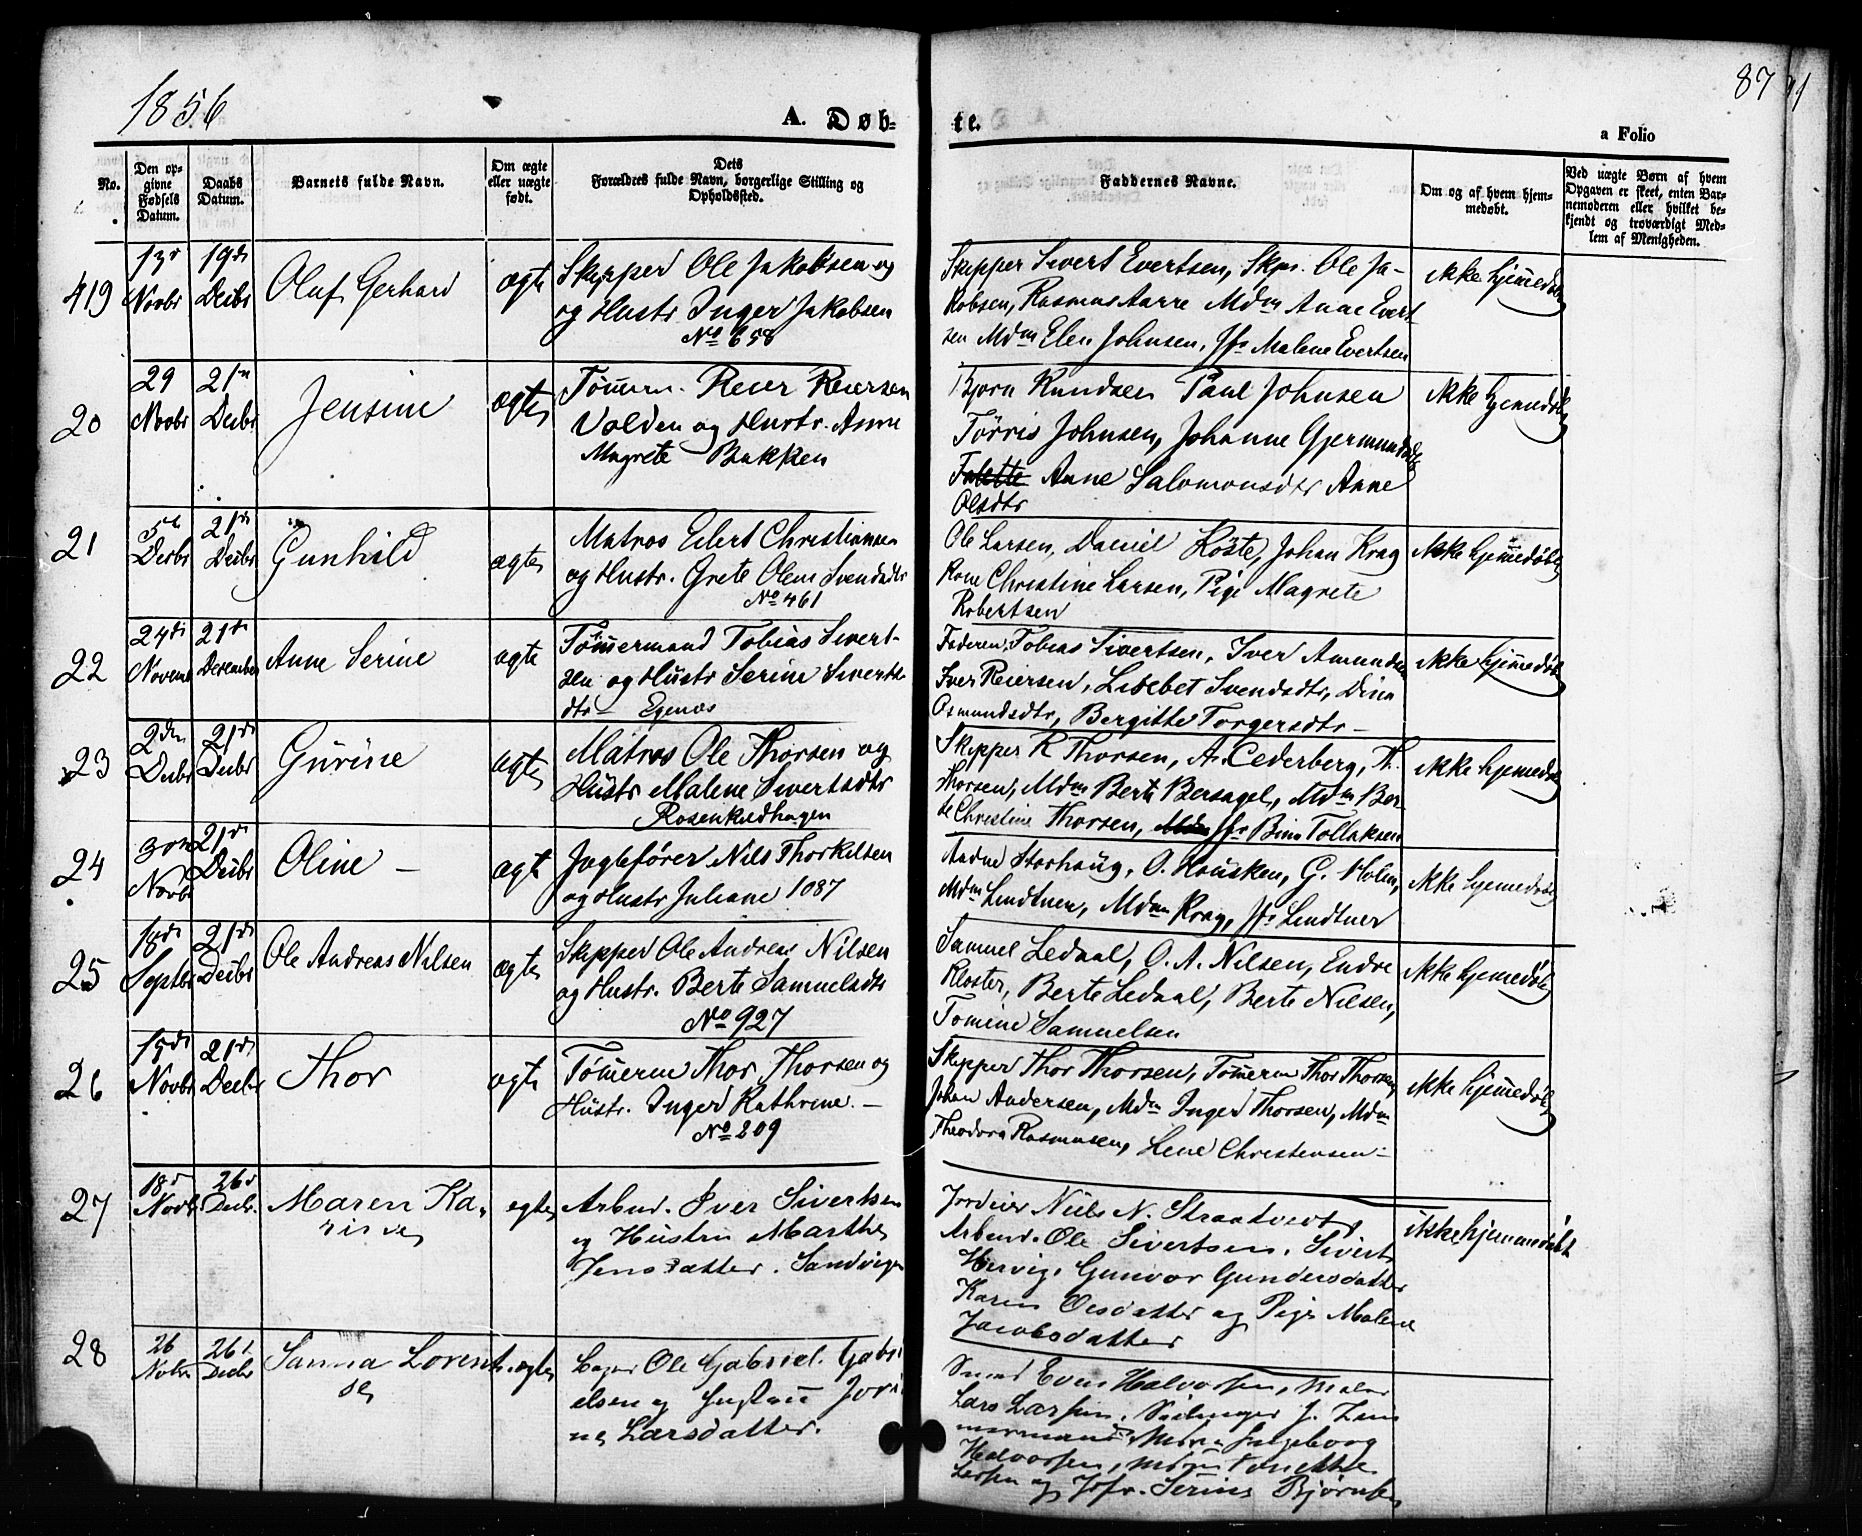 1856
A. Døb-
te.
87
a Folio
No.
Den op-
givne
Fødsels
Datum.
Daabs
Datum.
Barnets fulde Navn.
Om ægte
eller uægte
født.
Dets
Forældres fulde Navn, borgerlige Stilling og
Opholdssted.
Faddernes Navne.
Om og af hvem hjem-
medøbt.
Ved uægte Børn af hvem
Opgaven er skeet, enten Bar-
nemoderen eller hvilket be-
kjendt og troværdigt Med-
lem af Menigheden.
419
13de
Novbr
19de
Decbr
Oluf Gerhard
ægte
Skipper Ole Jakobsen og
og Hustr Inger Jakobsen
No 658
Skipper Sivert Evertsen, Skpr. Ole Ja-
kobsen, Rasmus Aarre Mdm Anne Evert
sen Mdm Elen Johnsen, Jfr Malene Evertsen
ikke hjemedøbt
20
29
Novbr
21de
Decbr
Jensine
ægte
Tömerm. Reier Reiersen
Volden og Hustr. Anne
Magrete Bakken
Bjorn Knudsen Paul Johnsen
Törris Johnsen, Johanne Gjermundsdtr
Anne Salomonsdtr Anne
Olsdtr
ikke hjemedöbt
21
5te
Decbr
21de
Decbr
Gunhild
ægte
Matros Eilert Christiansen
og Hustr. Grete Olene Svendsdtr
No 461
Ole Larsen, Daniel Köste, Johan Krag
Kone Christine Larsen, Pige Magrete
Robertsen
ikke hjemedøbt
22
24de
Novemb
21de
December
Anne Serine
ægte
Tömermand Tobias Sivert-
sen og Hustr Serine Siverts-
dtr — Egenæs
Faderen, Tobias Sivertsen, Iver Amundsen
Iver Reiersen, Lisebet Svendsdtr, Dina
Osmundsdtr, Bergitte Torgersdtr —
ikke hjemedøbt
23
2den
Decbr
21de
Decbr
Gurine
ægte
Matros Ole Thorsen og
Hustr Malene Sivertsdtr
Rosenkildhagen
Skipper R Thorsen, A. Cederberg, Th.
Thorsen, Mdm Berte Bersagel, Mdm Ber-
te Christine Thorsen, Mdm Jfr Bine Tollaksen
ikke hjemedøbt
24
30te
Novbr
21de
Decbr
Oline —
ægte
Jagtefører Nils Thorkilsen
og Hustr Juliane 1087
Andne Storhaug, O. Hausken, G. Holm,
Mdm Lindtner, Mdm Krag, Jfr Lindtner
ikke hjemedøbt
25
18de
Septbr
21de
Decbr
Ole Andreas Nilsen
ægte
Skipper Ole Andreas Nilsen
og Hustr. Berte Samuelsdtr
No 927
Samuel Ledaal, O. A. Nilsen, Endre
Kloster, Berte Ledaal, Berte Nilsen,
Tomine Samuelsen
ikke hjemedøbt
26
15de
Novbr
21de
Decbr
Thor
ægte
Tömerm Thor Thorsen og
Hustr. Inger Kathrine. —
No 209
Skipper Thor Thorsen, Tömerm Thor Thorsen,
Johan Andersen, Mdm Inger Thorsen, Mdm
Theodora Rasmussen, Lene Christensen —
ikke hjemedøbt
27
18de
Novb
26de
Decbr.
Maren Ka-
rine
ægte
Arbmd. Iver Sivertsen
og Hustru Marthe
Jensdatter. Sandvigen
Jordeier Niels N. Strandvedt,
Arbmd. Ole Sivertsen, Sivert
Hervig, Gunvor Gundersdatter
Karen Olsdatter og Pige Malene
Jacobsdatter
ikke hjemmedøbt
28
26
Nobr
26d
Decbr
Sanna Lorent-
se
ægte
Ole Gabriel Gabri
elsen og Hustru Jori
ne Larsdatter.
Smed Even Halvorsen, Maler
Lars Larsen, J. Zim
mermand, Mdm Ingeborg
Halvorsen, Mdm Tonette
Larsen og Jfr. Serine Bjørnsen